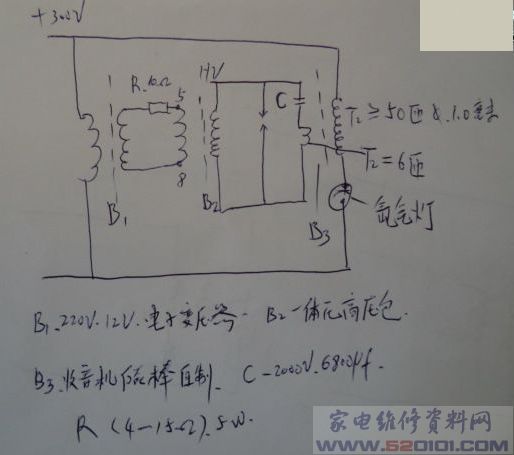 +300V
HV
R 10Ω
5
8
C
T₂ ≥ 50匝 &1.0毫米
T₂ = 6匝
氙气灯
B₁
B₂
B₃
B₁ 220V.12V.电子变压器. B₂ 一体化高压包.
B₃ 收音机磁棒自制. C-2000V.6800Pf.
R (4-15Ω).5W.
家电维修资料网
www.520101.com